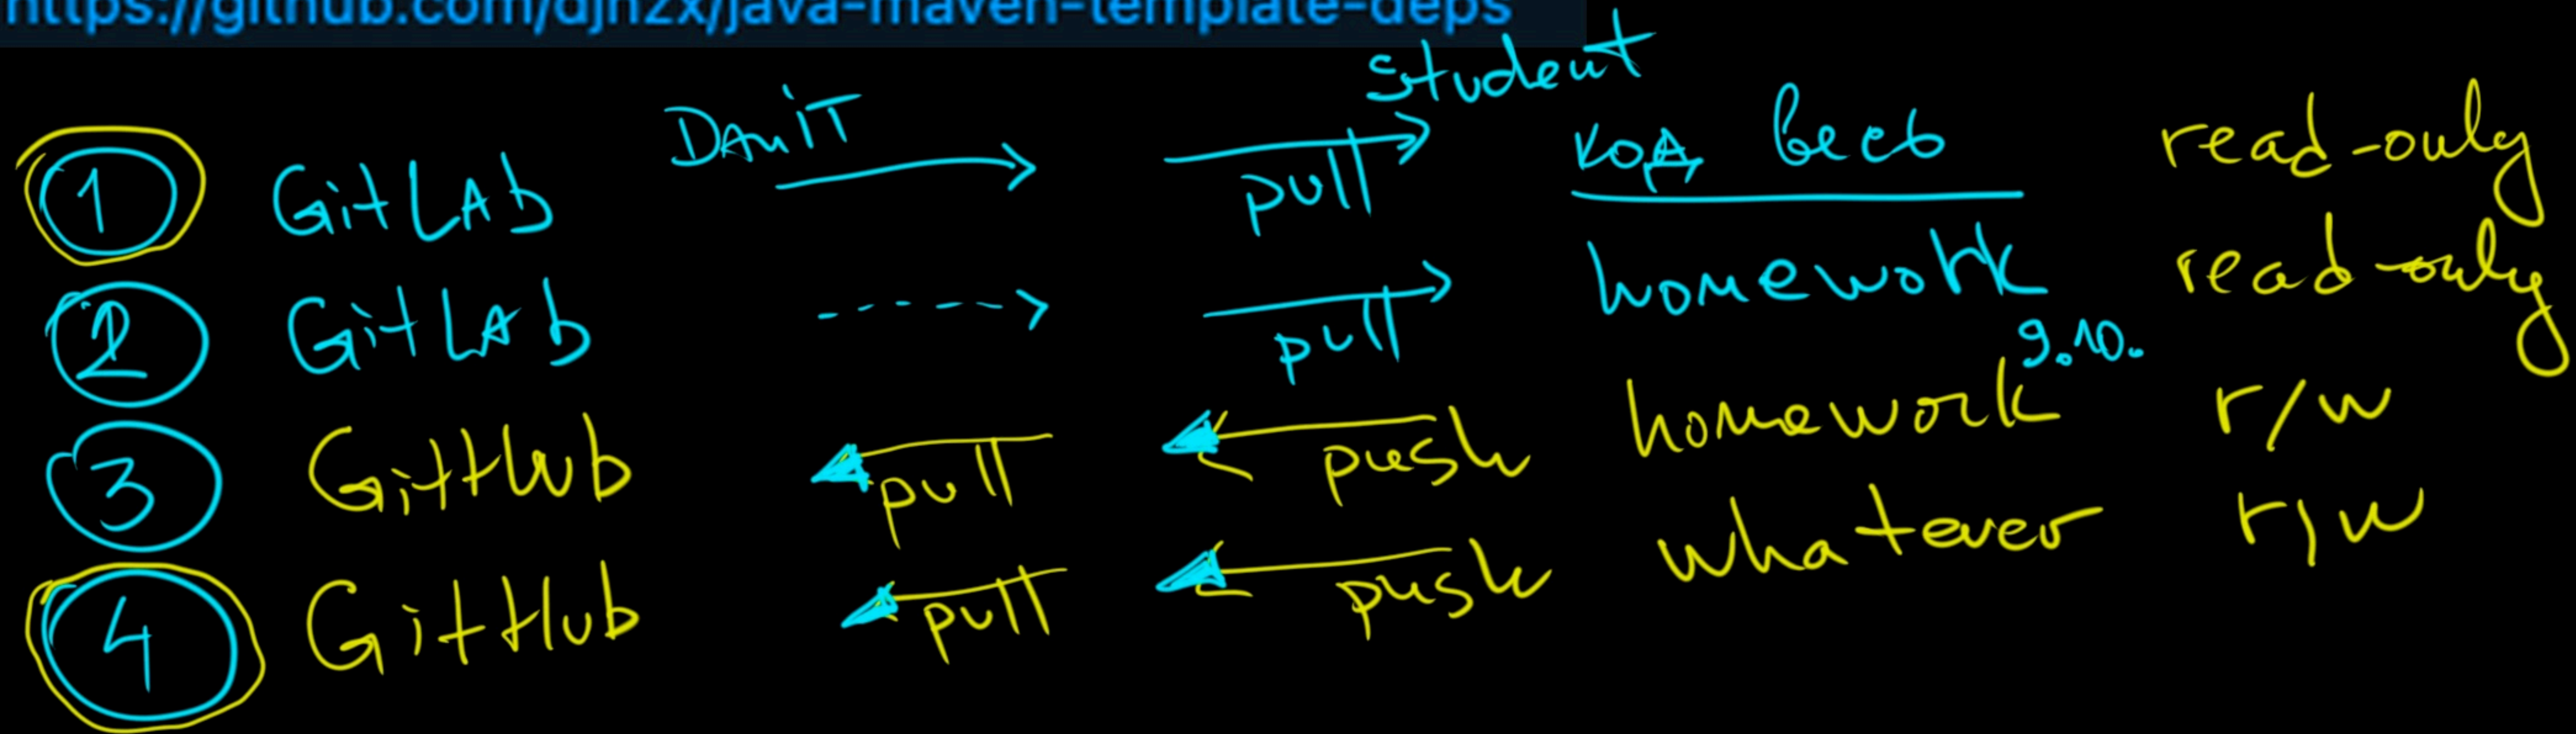 https://github.com/djnzx/java-maven-template-deps
1 GitLAb DAniT pull student код весь read-only
2 GitLAb pull homework read-only
9.10.
3 GitHub pull push homework r/w
4 GitHub pull push whatever r/w